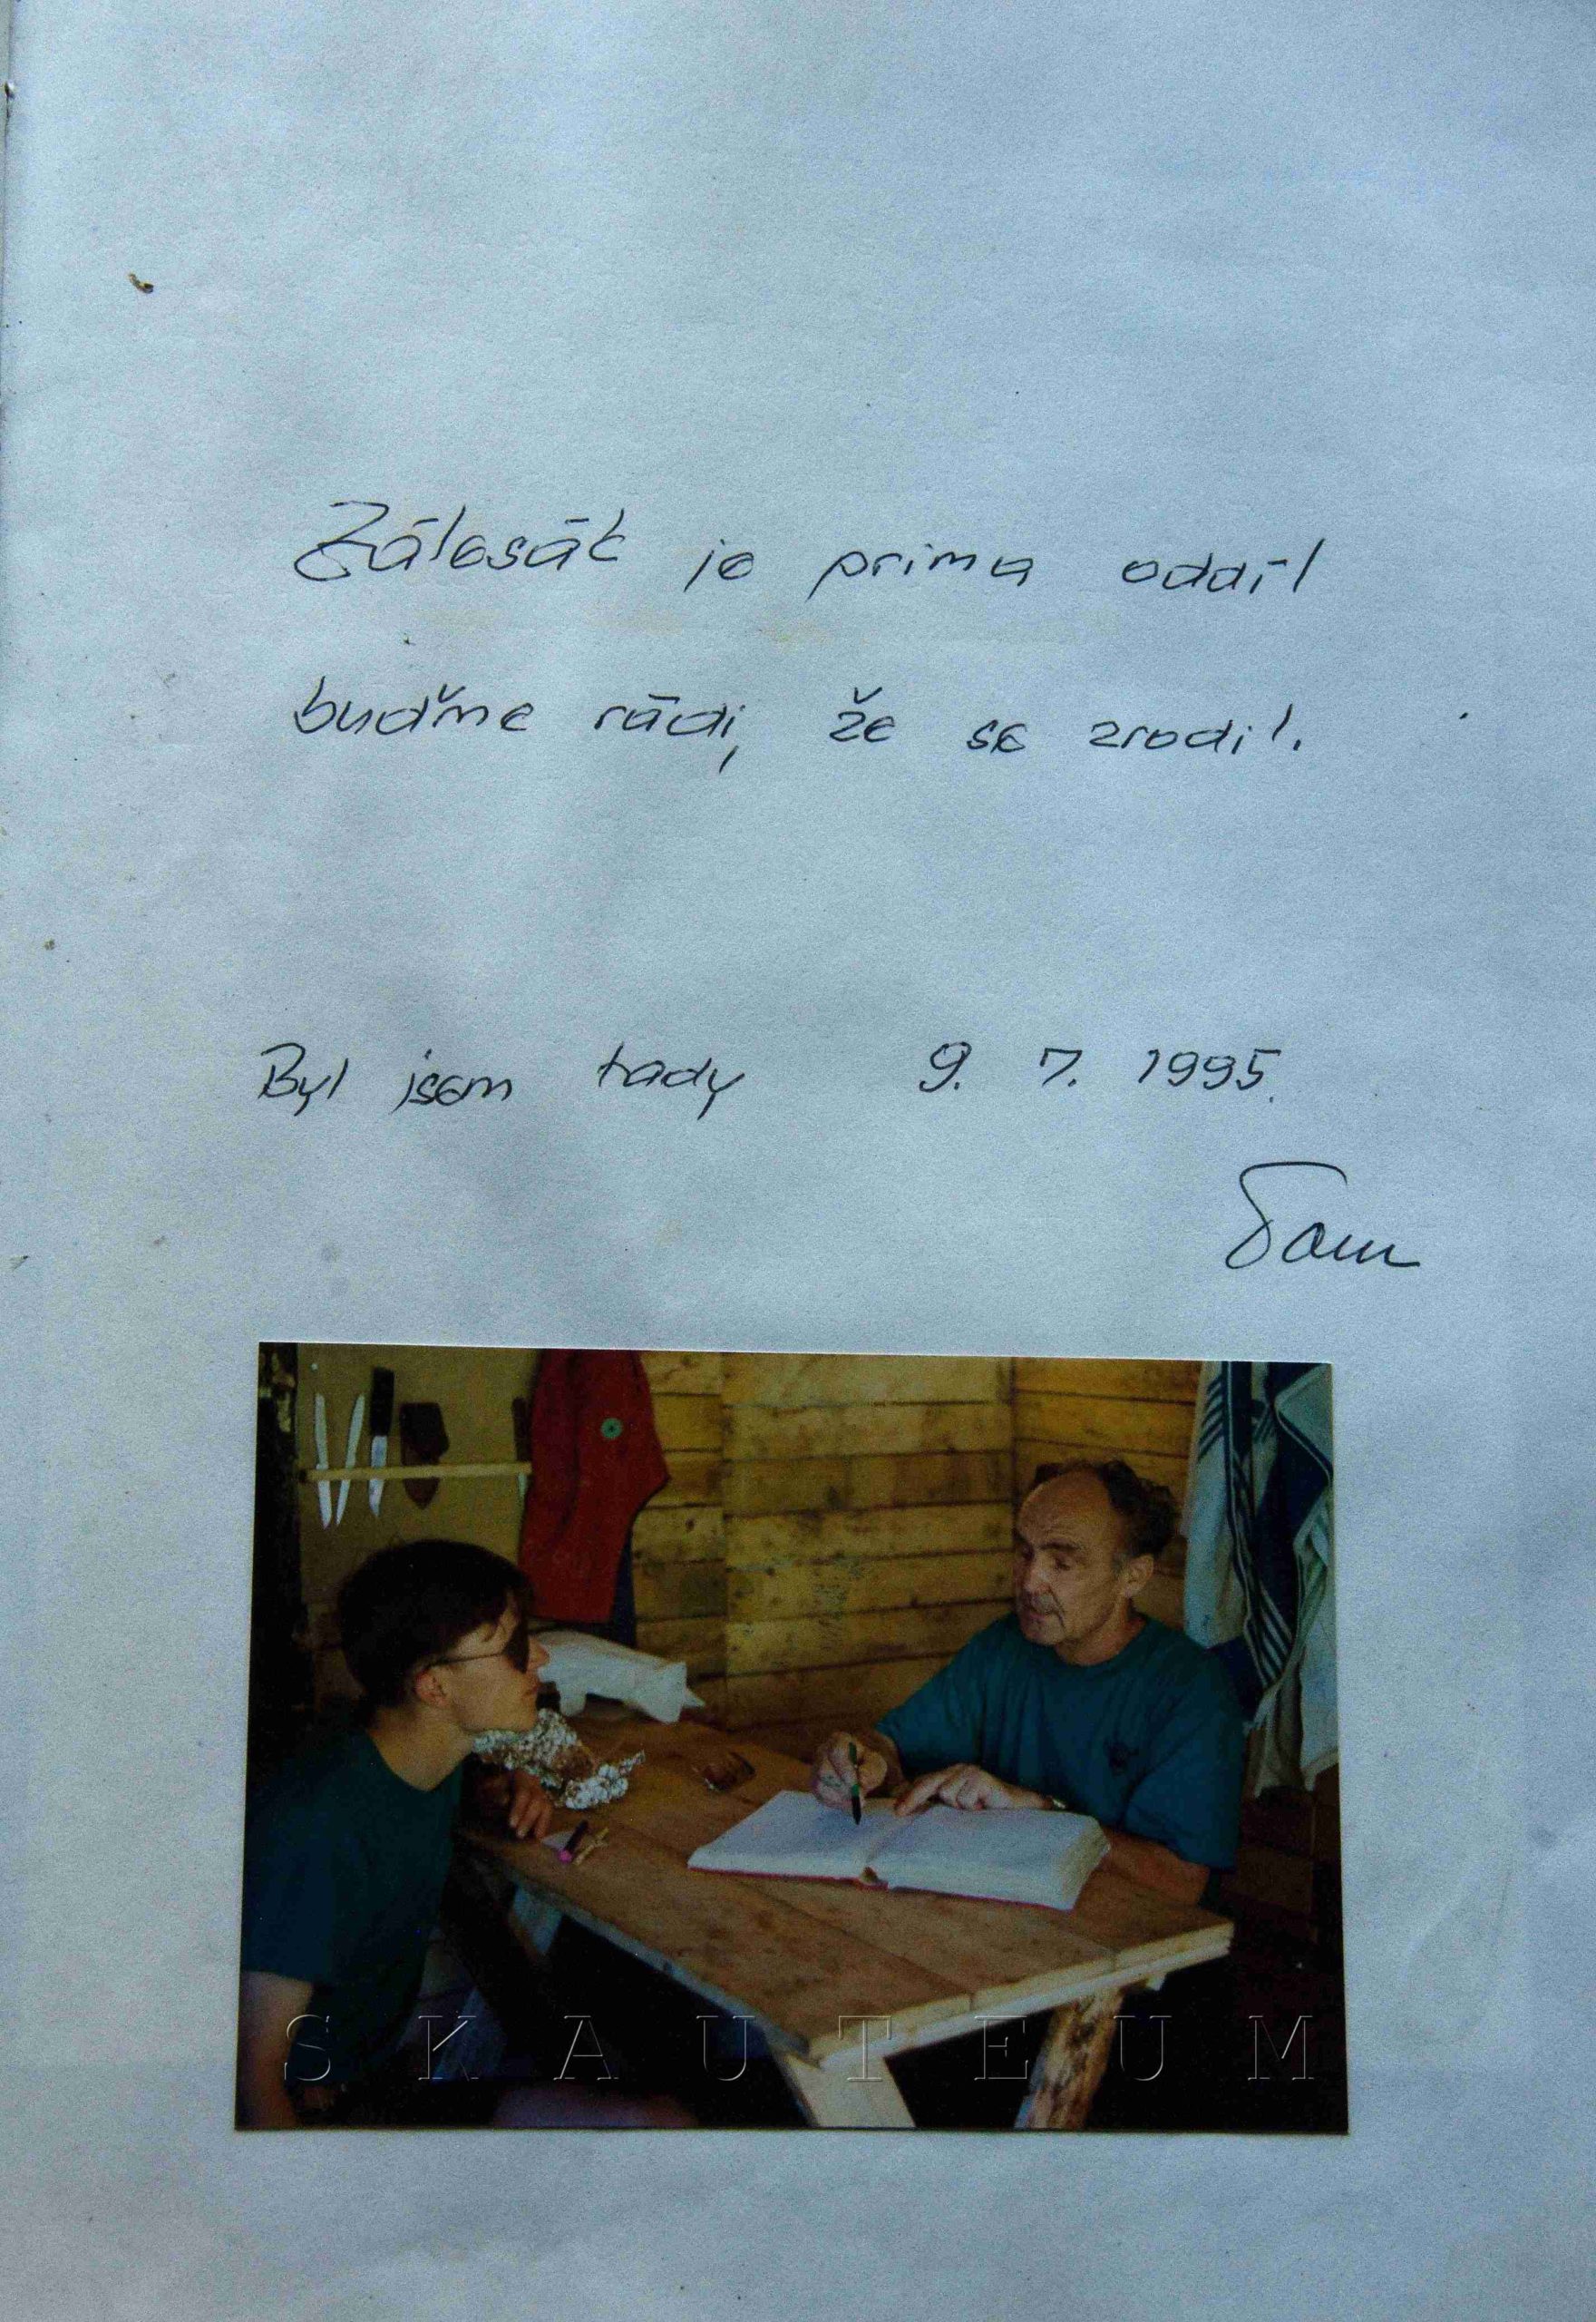 Zálesák je prima oddíl
buďme rádi, že se zrodil.
Byl jsem tady 9. 7. 1995.
Tom
SKAUTEUM